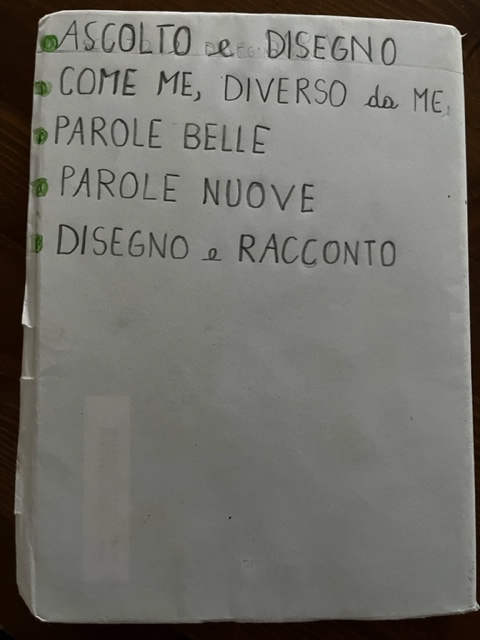 ASCOLTO e DISEGNO
COME ME, DIVERSO da ME,
PAROLE BELLE
PAROLE NUOVE
DISEGNO e RACCONTO